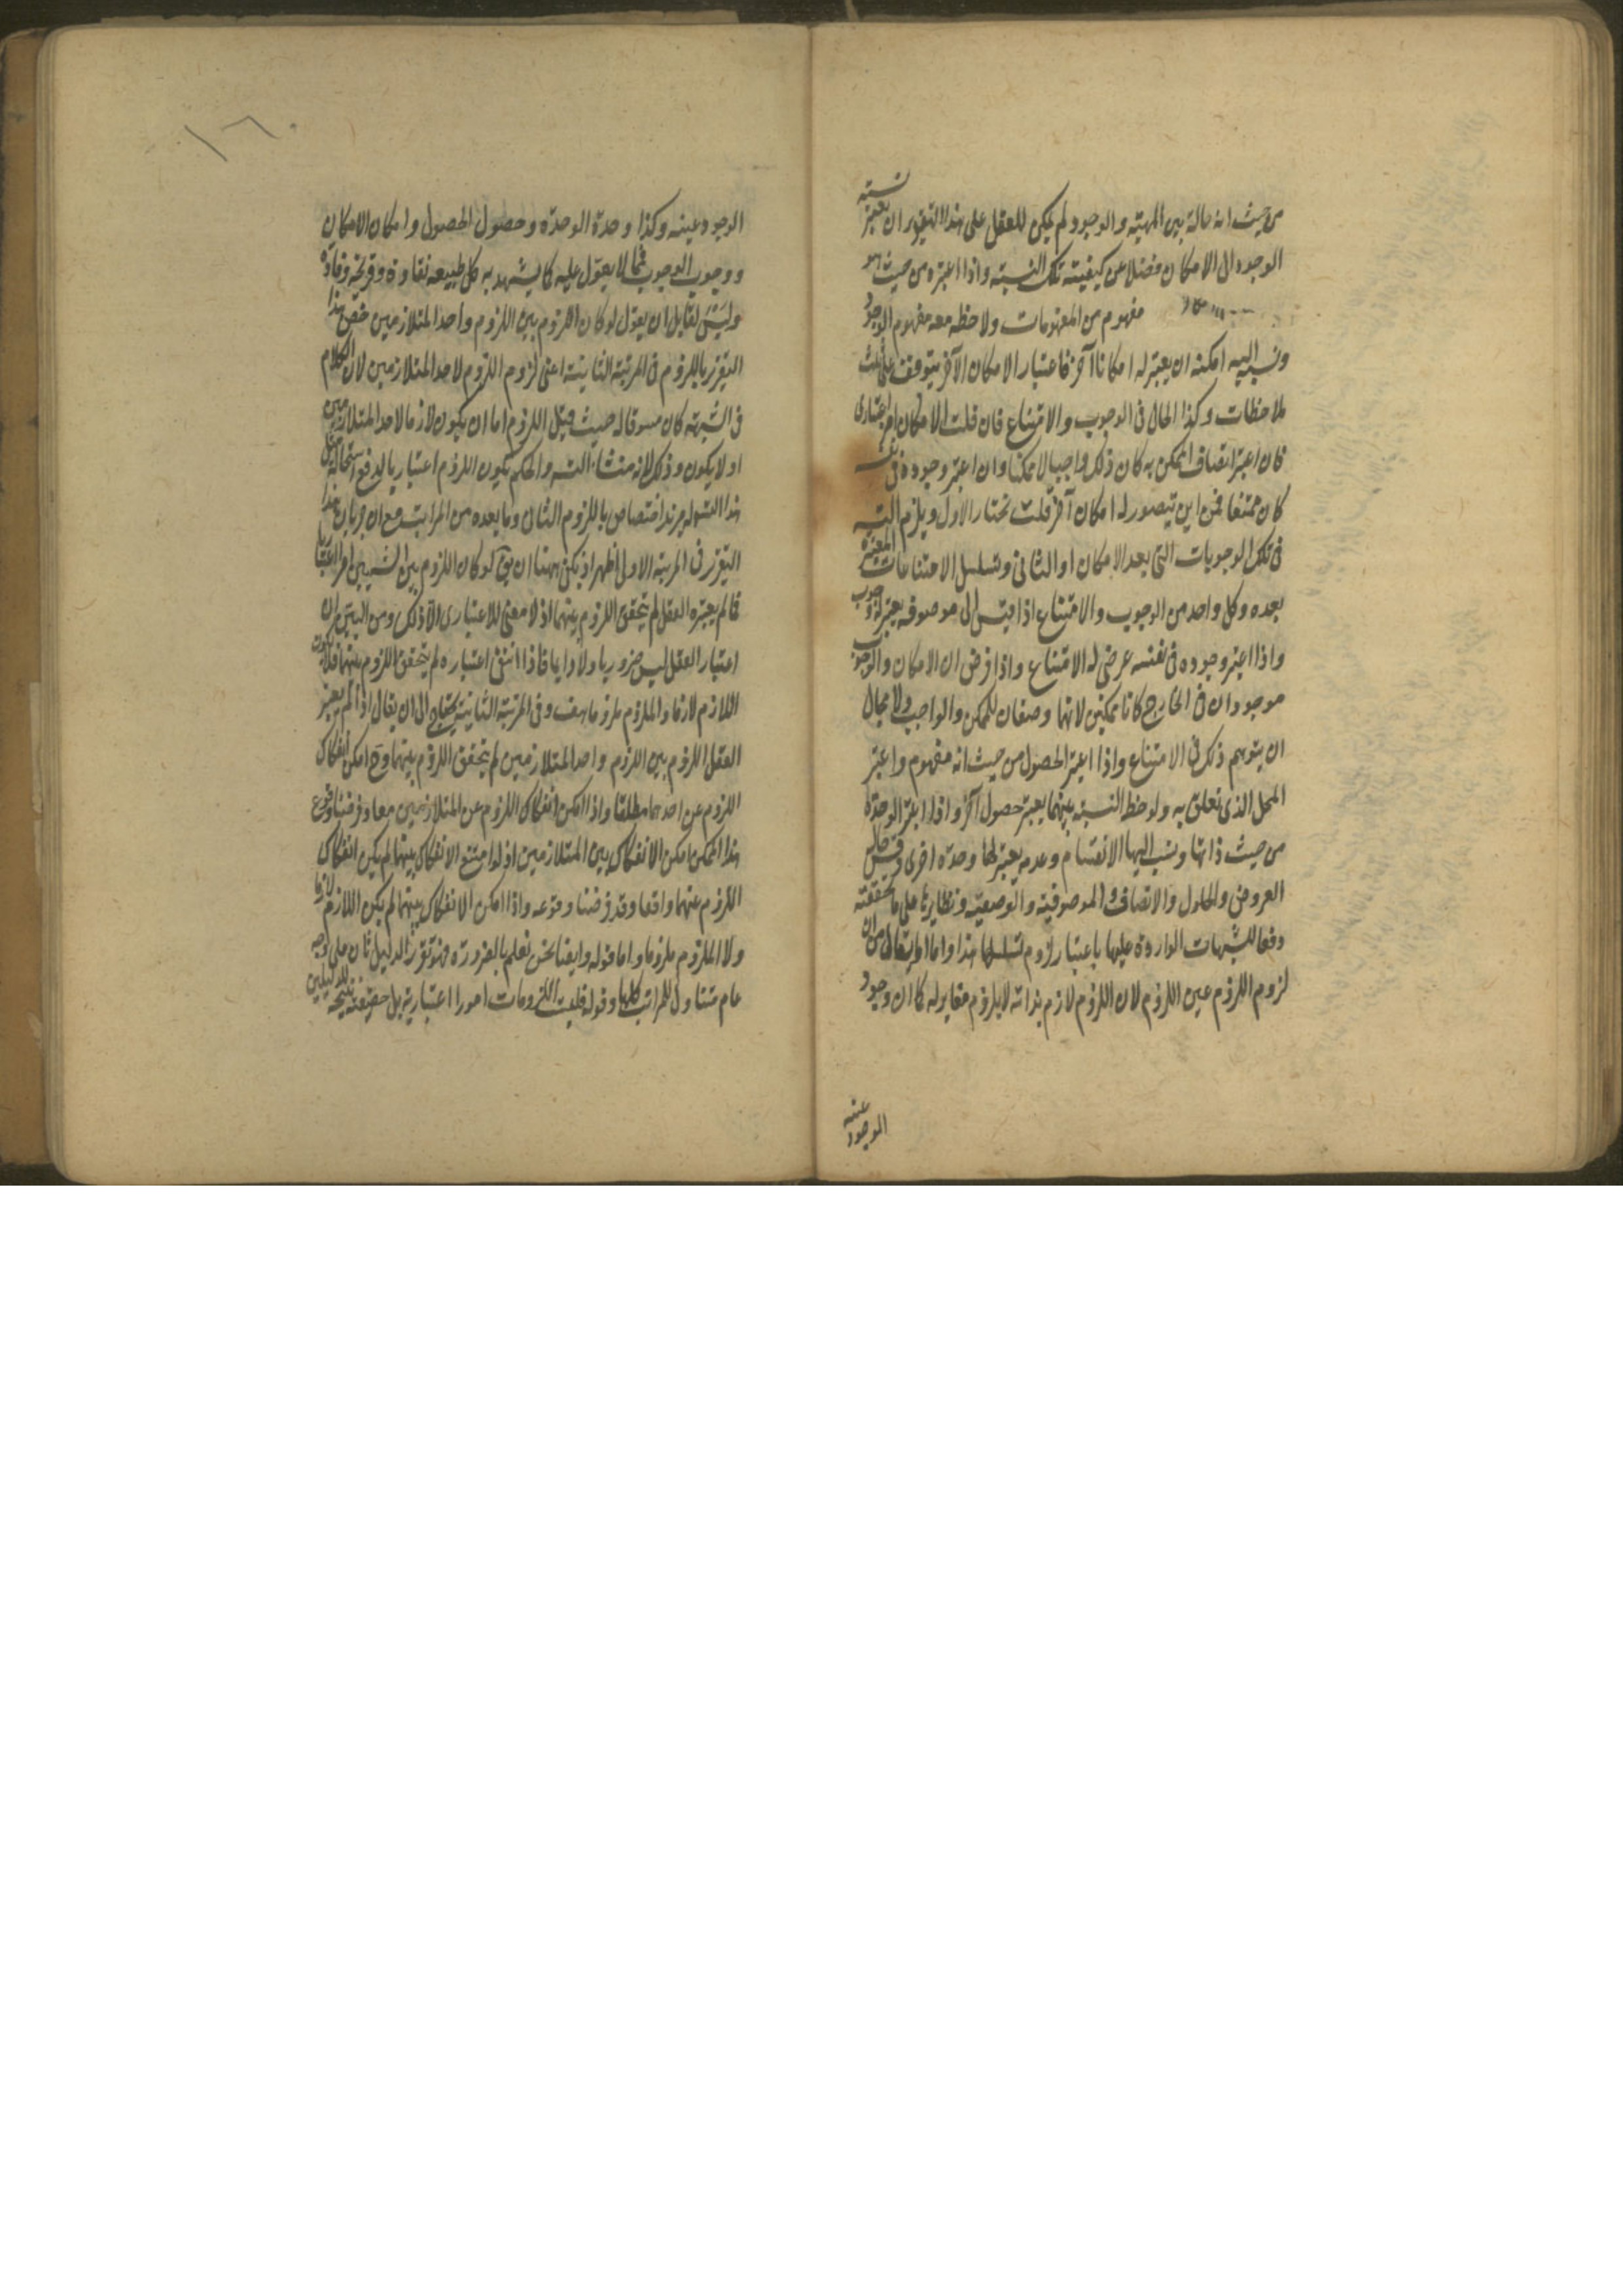 من حيث انه حالة بين المهية والوجود لم يمكن للعقل على هذا التقدير ان يعتبر نسبة
الوجود الى الامكان فضلا عن كيفية تلك النسبة واذا اعتبره من حيث هو
مفهوم من المفهومات ولاحظ معه مفهوم الوجود
ونسب اليه امكنه ان يعتبر له امكانا آخر فاعتبار الامكان الآخر يتوقف على ثلث
ملاحظات وكذا الحال فى الوجوب والامتناع فان قلت الامكان امر اعتبارى
فان اعتبر اتصاف الممكن به كان ذلك واجبا لا ممكنا وان اعتبر وجوده فى نفسه
كان ممتنعا فمن اين يتصور له امكان آخر قلت نختار الاول ويلزم التسه
فى تلك الوجوبات التى بعد الامكان او الثانى وتسلسل الامتناعات المعتبرة
بعده وكل واحد من الوجوب والامتناع اذا قيس الى موصوفه يعتبر له وجوب
واذا اعتبر وجوده فى نفسه عرض له الامتناع واذا فرض ان الامكان والوجوب
موجودان فى الخارج كانا ممكنين لانهما وصفان للممكن والواجب ولا مجال
ان يتوهم ذلك فى الامتناع واذا اعتبر الحصول من حيث انه مفهوم واعتبر
المحل الذى تعلق به ولوحظ النسبة بينهما يعتبر حصول آخر واذا اعتبر الوحدة
من حيث ذاتها ونسب اليها الانقسام وعدمه يعتبر لها وحدة اخرى وقس حال
العروض والحلول والاتصاف والموصوفية والوصفية ونظايرها على ما حققته
دفعا للشبهات الواردة عليها باعتبار لزوم تسلسلها هذا واما ما يقال من ان
لزوم اللزوم عين اللزوم لان اللزوم لازم بذاته لا بلزوم مغاير له كما ان وجود
الوجود عينه
الوجود عينه وكذا وحدة الوحدة وحصول الحصول وامكان الامكان
ووجوب الوجوب فمما لا يعول عليه كما يشهد به كل طبيعة نقادة وقريحة وقادة
وليس لقايل ان يقول لو كان اللزوم بين اللزوم واحد المتلازمين خص هذا
التقرير باللزوم فى المرتبة الثانية اعنى لزوم اللزوم لاحد المتلازمين لان الكلام
فى الشبهة كان مسوقا له حيث قيل اللزوم اما ان يكون لازما لاحد المتلازمين
او لا يكون وذلك لانه منشأ التسه والحكم بكون اللزوم اعتباريا لدفع استحالة مثل
هذا التسه له مزيد اختصاص باللزوم الثانى وما بعده من المراتب مع ان جريان هذا
التقرير فى المرتبة الاولى اظهر اذ يمكن ههنا ان يق لو كان اللزوم بين الشيئين امرا اعتباريا
فما لم يعتبره العقل لم يتحقق اللزوم بينهما اذ لا معنى للاعتبارى الا ذلك ومن البين ان
اعتبار العقل ليس ضروريا ولا دايما فاذا انتفى اعتباره لم يتحقق اللزوم بينهما فلا يكون
اللازم لازما والملزوم ملزوما هف وفى المرتبة الثانية يحتاج الى ان يقال اذا لم يعتبر
العقل اللزوم بين اللزوم واحد المتلازمين لم يتحقق اللزوم بينهما وح امكن انفكاك
اللزوم عن احدهما مطلقا واذا امكن انفكاك اللزوم عن المتلازمين معا وفرضنا وقوع
هذا الممكن امكن الانفكاك بين المتلازمين اذ لو امتنع الانفكاك بينهما لم يكن انفكاك
اللزوم عنهما واقعا وقد فرضنا وقوعه واذا امكن الانفكاك بينهما لم يكن اللازم لازما
ولا الملزوم ملزوما واما قوله وايضا نحن نعلم بالضرورة فهو تقرير الدليل ثان على وجه
عام متناول للمراتب كلها وقوله فليست اللزومات امورا اعتبارية بل حقيقة نتيجة للدليلين